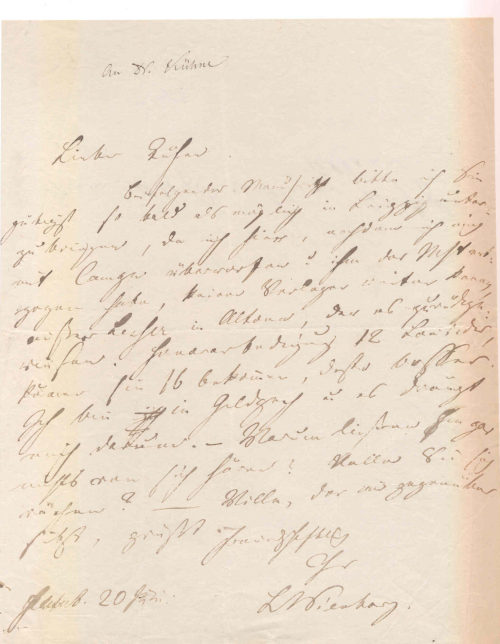 An Dr. Kühne
Lieber Kühne.
Beifolgendes Manuscript bitte ich Sie
gütigst so bald als möglich in Leipzig unter-
zubringen, da ich hier, nachdem ich mich
mit Campe überworfen u ihm das Mst ent-
zogen habe, keinen Verleger weiter kenne
außer in Altona, der es
Honorarbedingung 12 Louisdor,
können Sie 16 bekommen, desto besser.
Ich bin in Geldpech u es drängt
mich darum. — Warum ließen Sie gar
nichts von sich hören? Wollen Sie sich
rächen? — Wille, der mir gegenüber
sitzt, grüßt
Ihr
20
L Wienbarg.